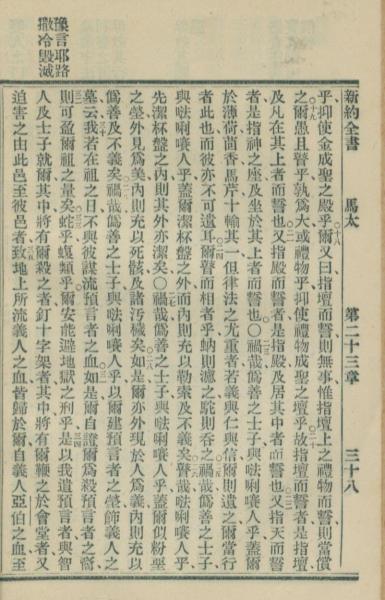 新約全書　馬太　第二十三章　三十八
乎抑使金成聖之殿乎爾又曰指壇而誓則無事惟指壇上之禮物而誓則當償
之爾愚且瞽乎孰爲大或禮物乎抑使禮物成聖之壇乎故指壇而誓者是指壇
及凡在其上者而誓也又指殿而誓者是指殿及居其中者而誓也又指天而誓
者是指神之座及坐於其上者而誓也〇禍哉僞善之士子與㖿唎㘔人乎蓋爾
於薄荷茴香馬芹十輸其一但律法之尤重者若義與仁與信爾則遺之爾當行
者此也而彼亦不可遺耳爾瞽而相者乎蚋則濾之駝則吞之〇禍哉僞善之士子
與㖿唎㘔人乎蓋爾潔杯盤之外而內則充以勒索及不義矣瞽哉㖿唎㘔人乎
先潔杯盤之內則其外亦潔矣〇禍哉僞善之士子與㖿唎㘔人乎蓋爾似粉堊
之塋外見爲美內則充以死骸及諸汚穢矣如是爾亦外現於人爲義內則充以
僞善及不義矣禍哉僞善之士子與㖿唎㘔人乎以爾建預言者之塋飾義人之
墓云我若在祖之日不與彼謀流預言者之血如是爾自證爾爲殺預言者之裔
則可盈爾祖之量矣蛇乎蝮類乎爾安能避地獄之刑乎是以我遣預言者與智
人及士子就爾其中將有爾殺之者釘十字架者其中將有爾鞭之於會堂者又
迫害之由此邑至彼邑者致地上所流義人之血皆歸於爾自義人亞伯之血至
豫言耶路
撒冷毀滅